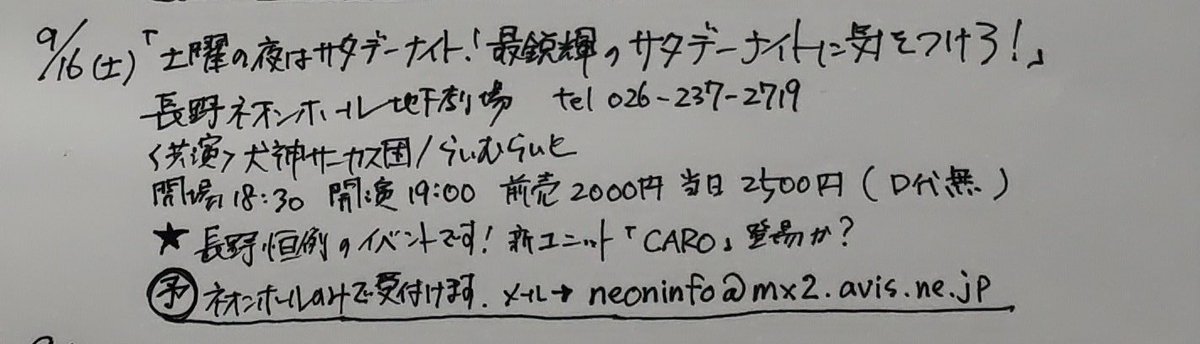 9/16(土)「土曜の夜はサタデーナイト!最鋭輝のサタデーナイトに気をつけろ!」
長野ネオンホール地下劇場 tel 026-237-2719
<共演>犬神サーカス団/らいむらいと
開場18:30 開演19:00 前売2000円 当日2500円(D代無)
★長野恒例のイベントです!新ユニット「CARO」登場か?
予 ネオンホールのみで受付けます.メール→neoninfo@mx2.avis.ne.jp